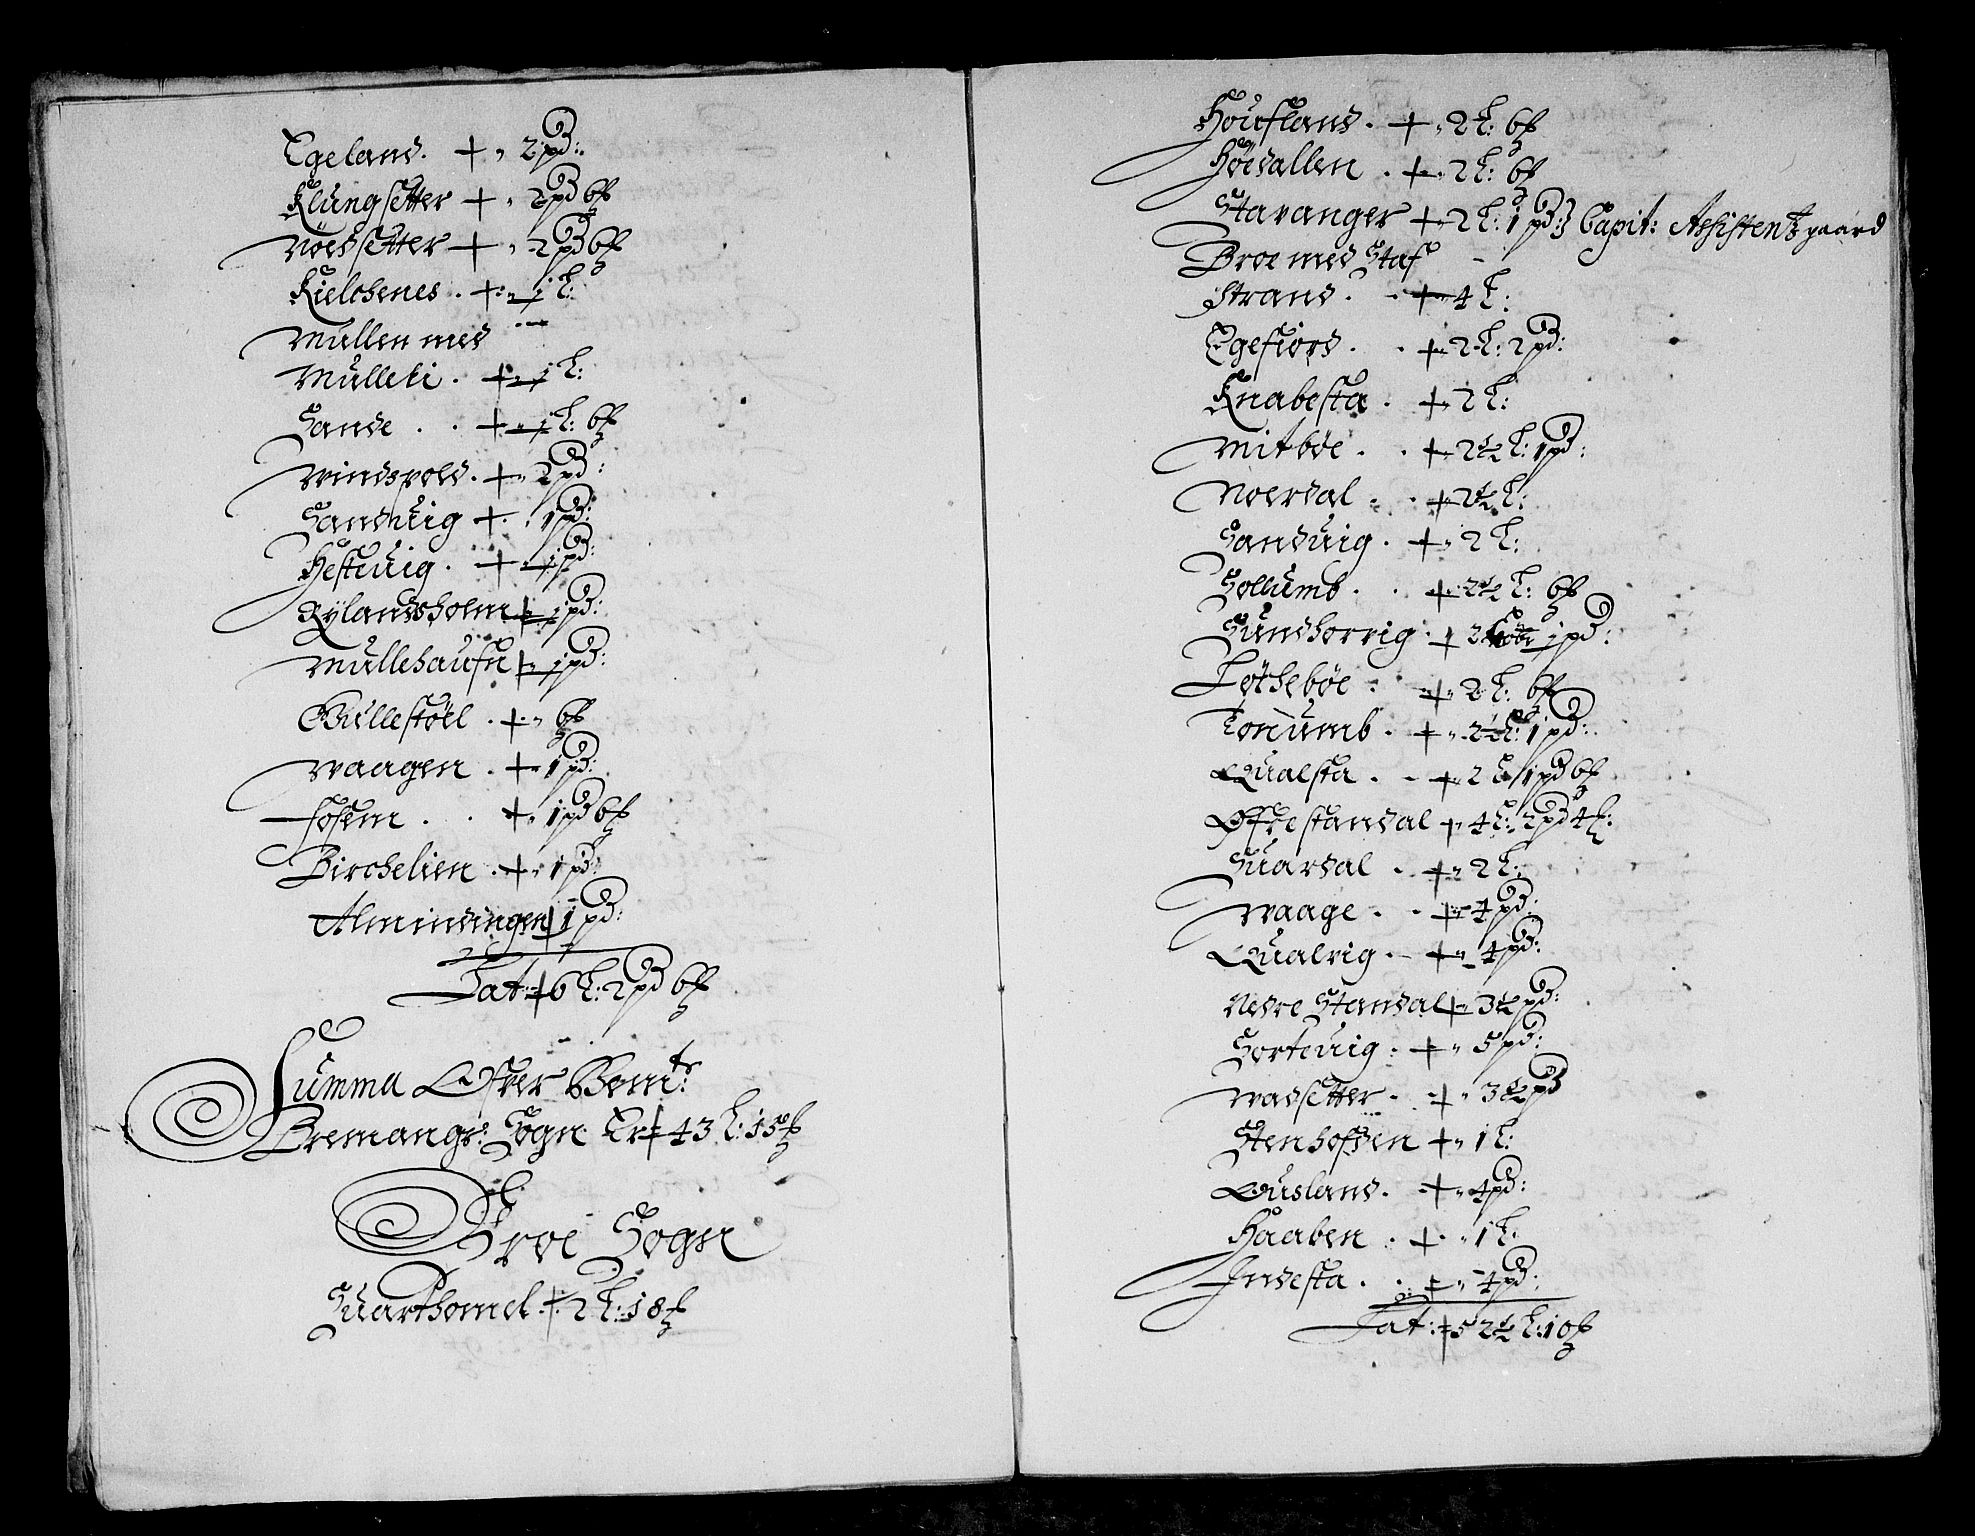 Egeland. + „ 2 pd:
Klungsetter + „ 2 pd 6 f
Nøedsetter + „ 2 pd 6 f
Kielchenes . + „ 1 L:
Mullen med
Mulleli . + „ 1 L:
Sande . . + „ 1 L: 6 f
Windspold . + „ 2 pd:
Sanduiig + . 1 pd:
Hestuiig . + „ 1 pd:
Rylandsholm + „ 1 pd:
Mullehaufn + „ 1 pd:
Gullestøel . + „ 6 f
Waagen . + „ 1 pd:
Fosem . . + „ 1 pd 6 f
Birchelien . + „ 1 pd:
Almindingen + 1 pd:
Lat: + 6 L: 2 pd 6 f
Summa Ofver Bemt:
Bremangs: Sogn Er + 43 L: 15 f
Broe Sogn
Suarthomel . + 2 L: 18 f
Houfland . + „ 2 L: 6 f
Høidallen . + „ 2 L: 6 f
Stavanger + „ 2 L: 1 pd: } Capit: Assistentz gaard
Broe med Staf –
Strand . . + „ 4 L:
Egefiord . . + „ 2 L: 2 pd:
Knabesta . + „ 2 L:
Mitbøe . . + „ 2½ L: 1 pd:
Noerdal . . + „ 2½ L:
Sanduig . + „ 2 L:
Sollumb . . + „ 2½ L: 6 f
Sundhorrig . + 2 1 pd:
Løthebøe . . + „ 2 L: 6 f
Tonnumb . + „ 2½ L: 1 pd:
Qualsta . . + „ 2 L 1 pd 6 f
Øffrestandal + „ 4 L: 2 pd 4 f:
Suardal . + „ 2 L:
Waage . . + „ 4 pd:
Qualvig . – + „ 4 pd:
Nedre Standal + „ 3½ pd:
Sortuiig . + „ 5 pd:
Wadsetter . . + „ 3½ pd
Stenhofden + „ 1 L:
Ousland . + „ 4 pd:
Haaben . + . „ 1 L:
Indesta . . + „ 4 pd:
Lat: + 52½ L: 10 f